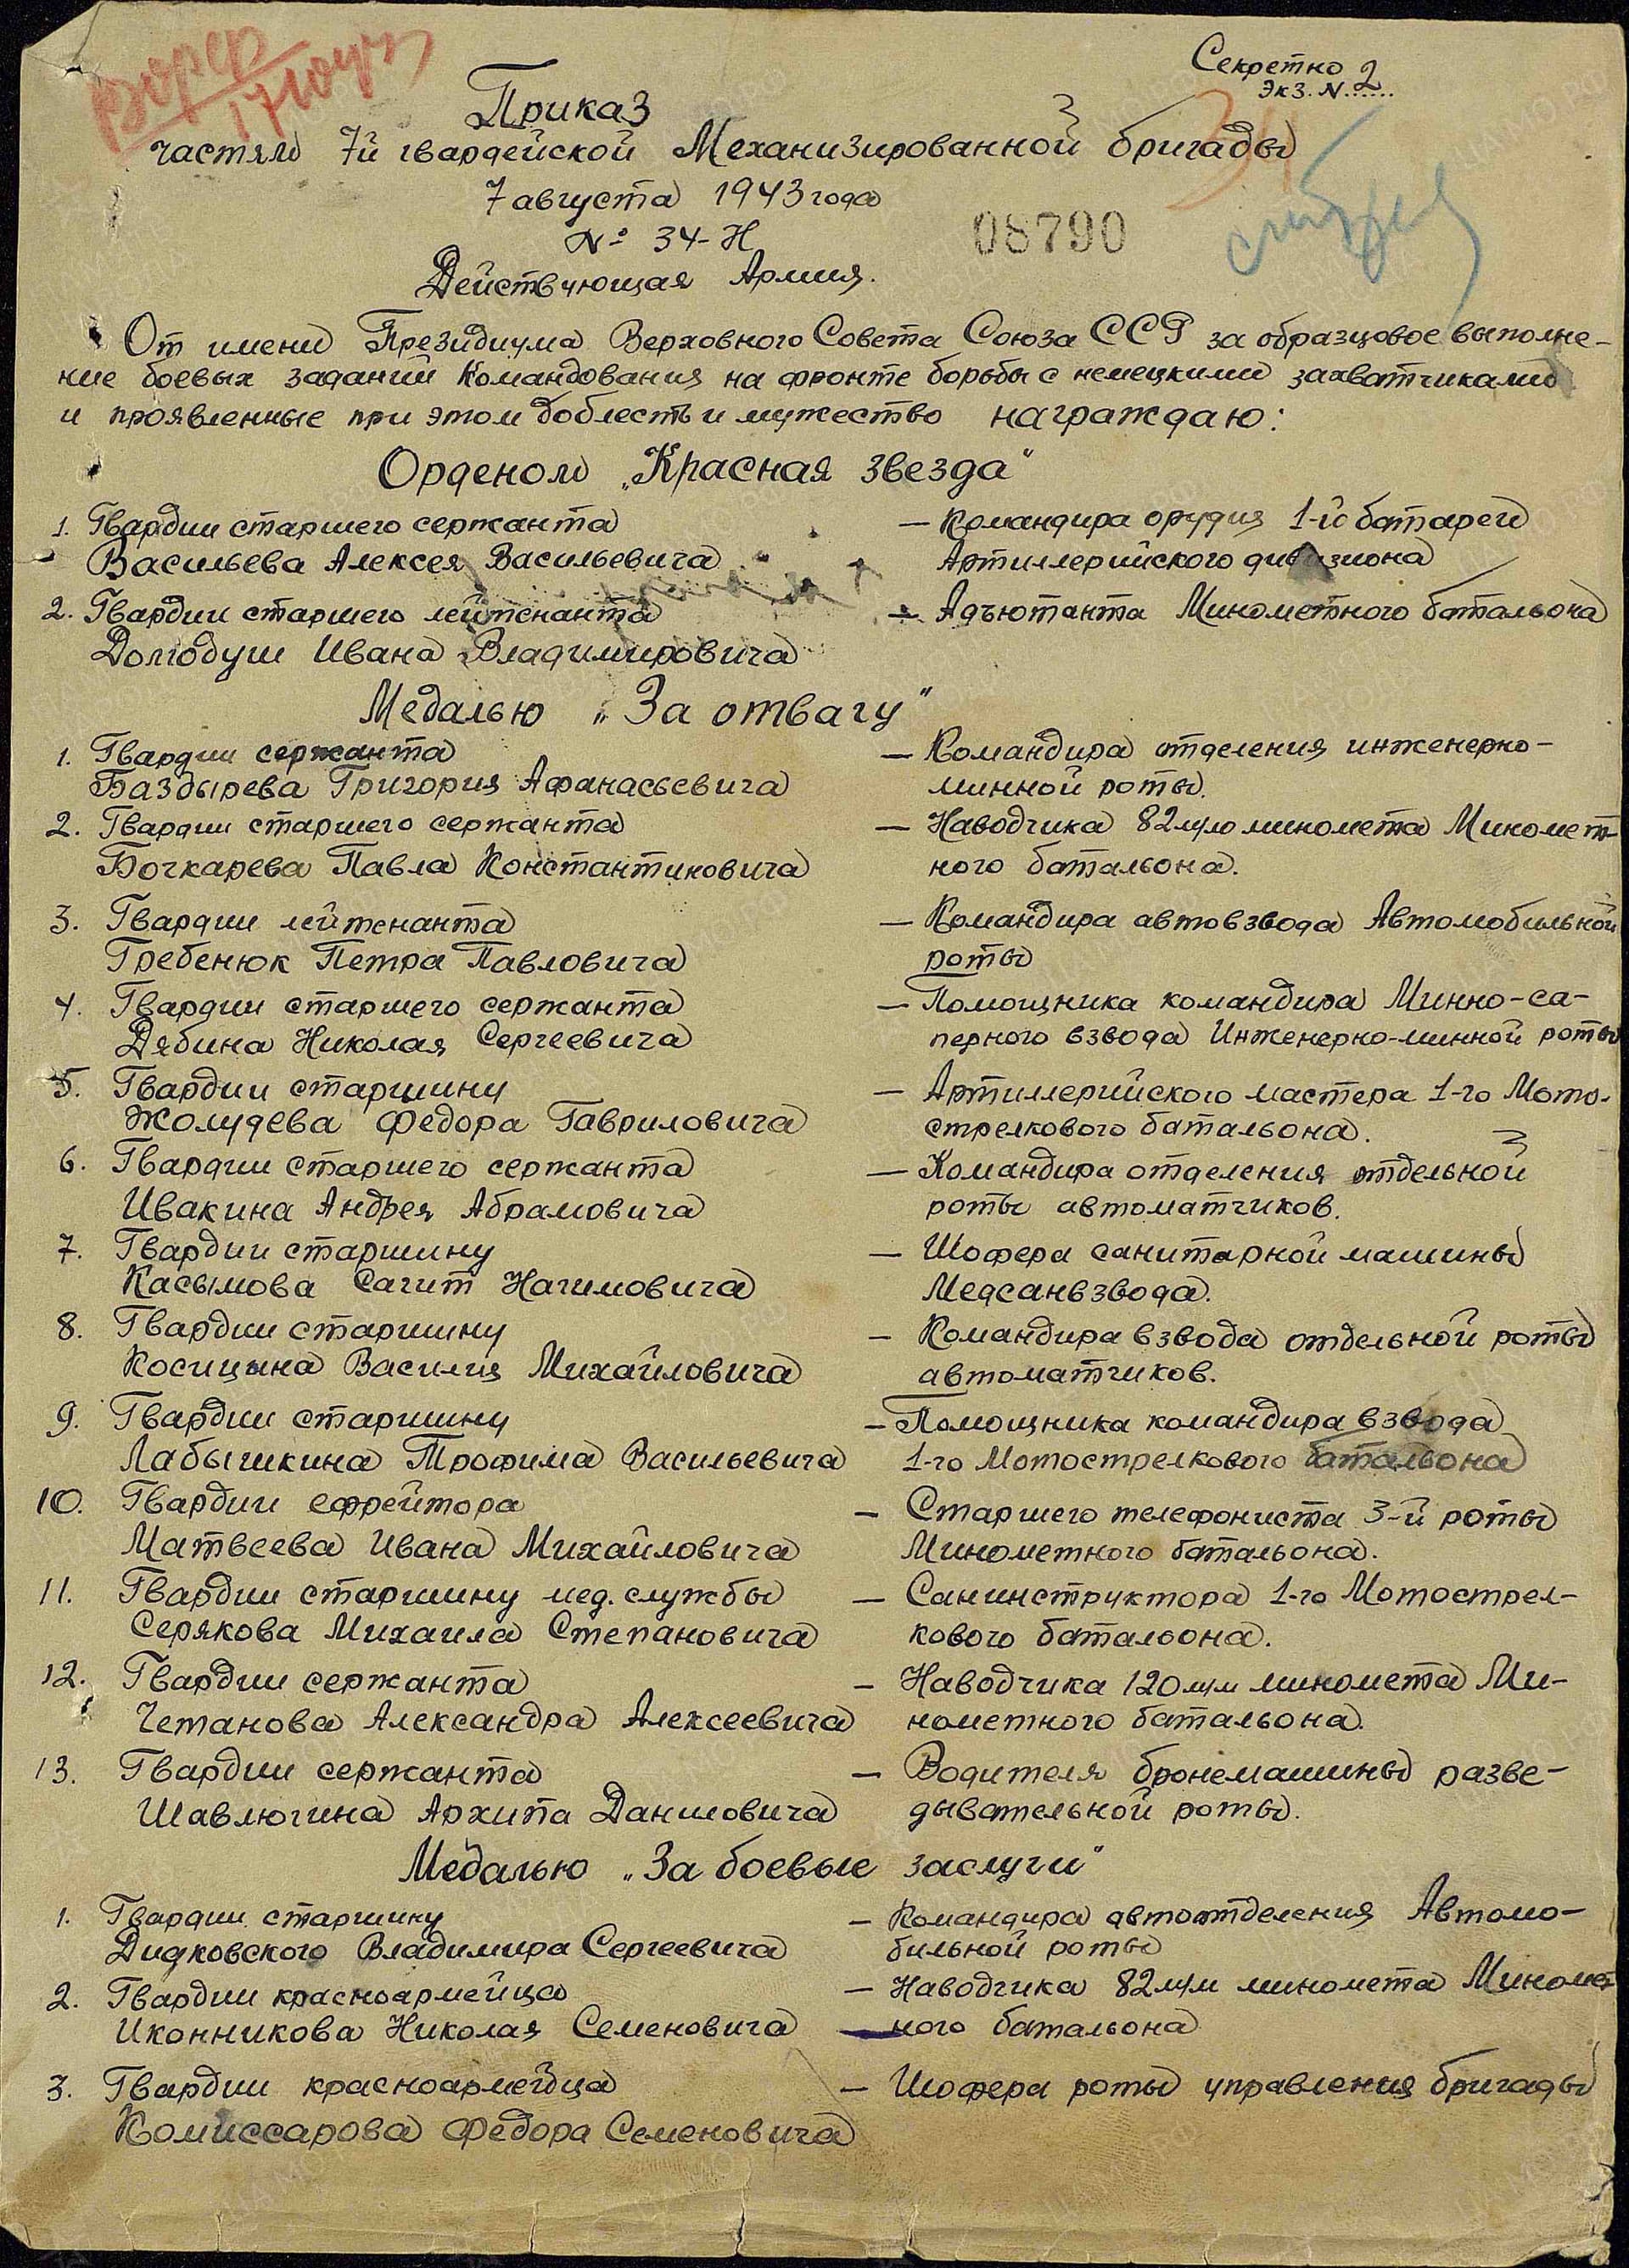 Секретно
Экз. N. 2
Приказ
частям 7й гвардейской Механизированной бригады
7 августа 1943 года
№ 34-Н
08790
Действующая Армия.
От имени Президиума Верховного Совета Союза ССР за образцовое выполне-
ние боевых заданий Командования на фронте борьбы с немецкими захватчиками
и проявленные при этом доблесть и мужество награждаю:
Орденом „Красная звезда“
1. Гвардии старшего сержанта — Командира орудия 1-й батареи
Васильева Алексея Васильевича Артиллерийского дивизиона
2. Гвардии старшего лейтенанта — Адъютанта Минометного батальона
Долгодуш Ивана Владимировича
Медалью „За отвагу“
1. Гвардии сержанта — Командира отделения инженерно-
Баздырева Григория Афанасьевича минной роты.
2. Гвардии старшего сержанта — Наводчика 82м/м миномета Миномет-
Бочкарева Павла Константиновича ного батальона.
3. Гвардии лейтенанта — Командира автовзвода Автомобильной
Гребенюк Петра Павловича роты
4. Гвардии старшего сержанта — Помощника командира Минно-са-
Дябина Николая Сергеевича перного взвода Инженерно-минной роты
5. Гвардии старшину — Артиллерийского мастера 1-го Мото-
Жолудева Федора Гавриловича стрелкового батальона.
6. Гвардии старшего сержанта — Командира отделения отдельной
Ивакина Андрея Абрамовича роты автоматчиков.
7. Гвардии старшину — Шофера санитарной машины
Касымова Сагит Нагимовича Медсанвзвода.
8. Гвардии старшину — Командира взвода отдельной роты
Косицына Василия Михайловича автоматчиков.
9. Гвардии старшину — Помощника командира взвода
Лабышкина Трофима Васильевича 1-го Мотострелкового батальона
10. Гвардии ефрейтора — Старшего телефониста 3-й роты
Матвеева Ивана Михайловича Минометного батальона.
11. Гвардии старшину мед. службы — Санинструктора 1-го Мотострел-
Серякова Михаила Степановича кового батальона.
12. Гвардии сержанта — Наводчика 120 м/м миномета Ми-
Четанова Александра Алексеевича нометного батальона.
13. Гвардии сержанта — Водителя бронемашины разве-
Шавлюгина Архипа Даниловича дывательной роты.
Медалью „За боевые заслуги“
1. Гвардии старшину — Командира автоотделения Автомо-
Дидковского Владимира Сергеевича бильной роты
2. Гвардии красноармейца — Наводчика 82м/м миномета Миномет
Иконникова Николая Семеновича ного батальона
3. Гвардии красноармейца — Шофера роты управления бригады
Комиссарова Федора Семеновича